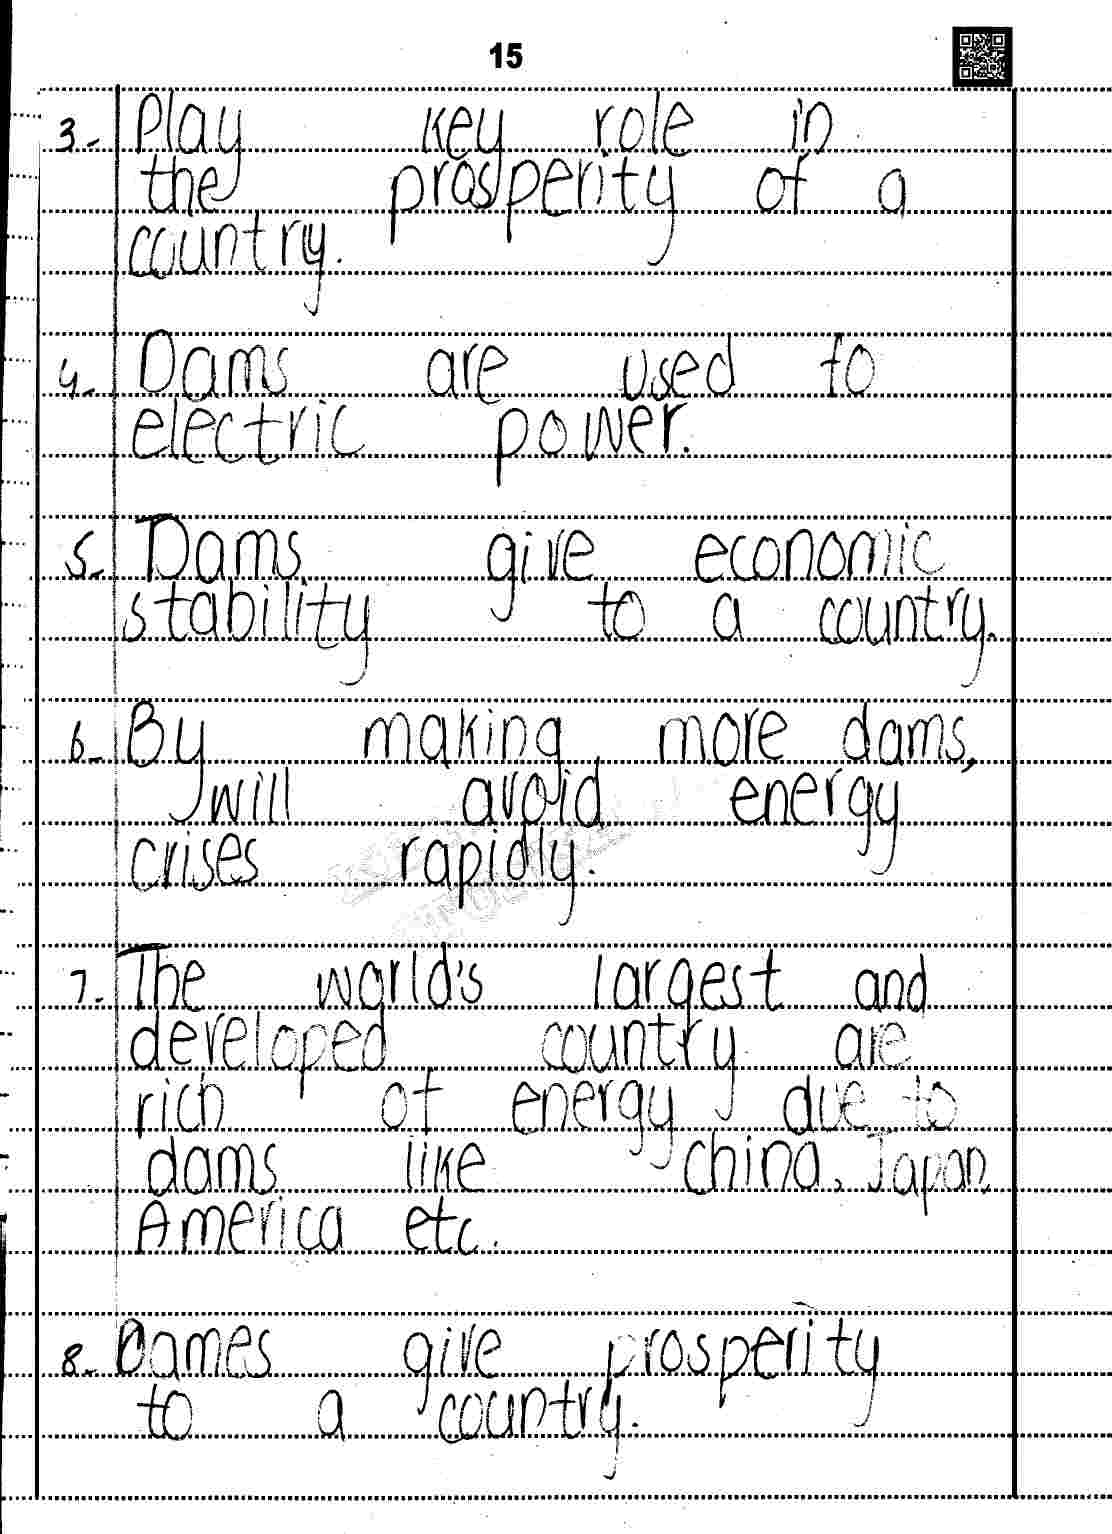 15
3- Play key role in
the prosperity of a
country.
4- Dams are used to
electric power.
5- Dams give economic
stability to a country.
6- By making more dams,
will avoid energy
crises rapidly.
7- The world's largest and
developed country are
rich of energy due to
dams like china, Japan
America etc.
8- Dames give prosperity
to a country.